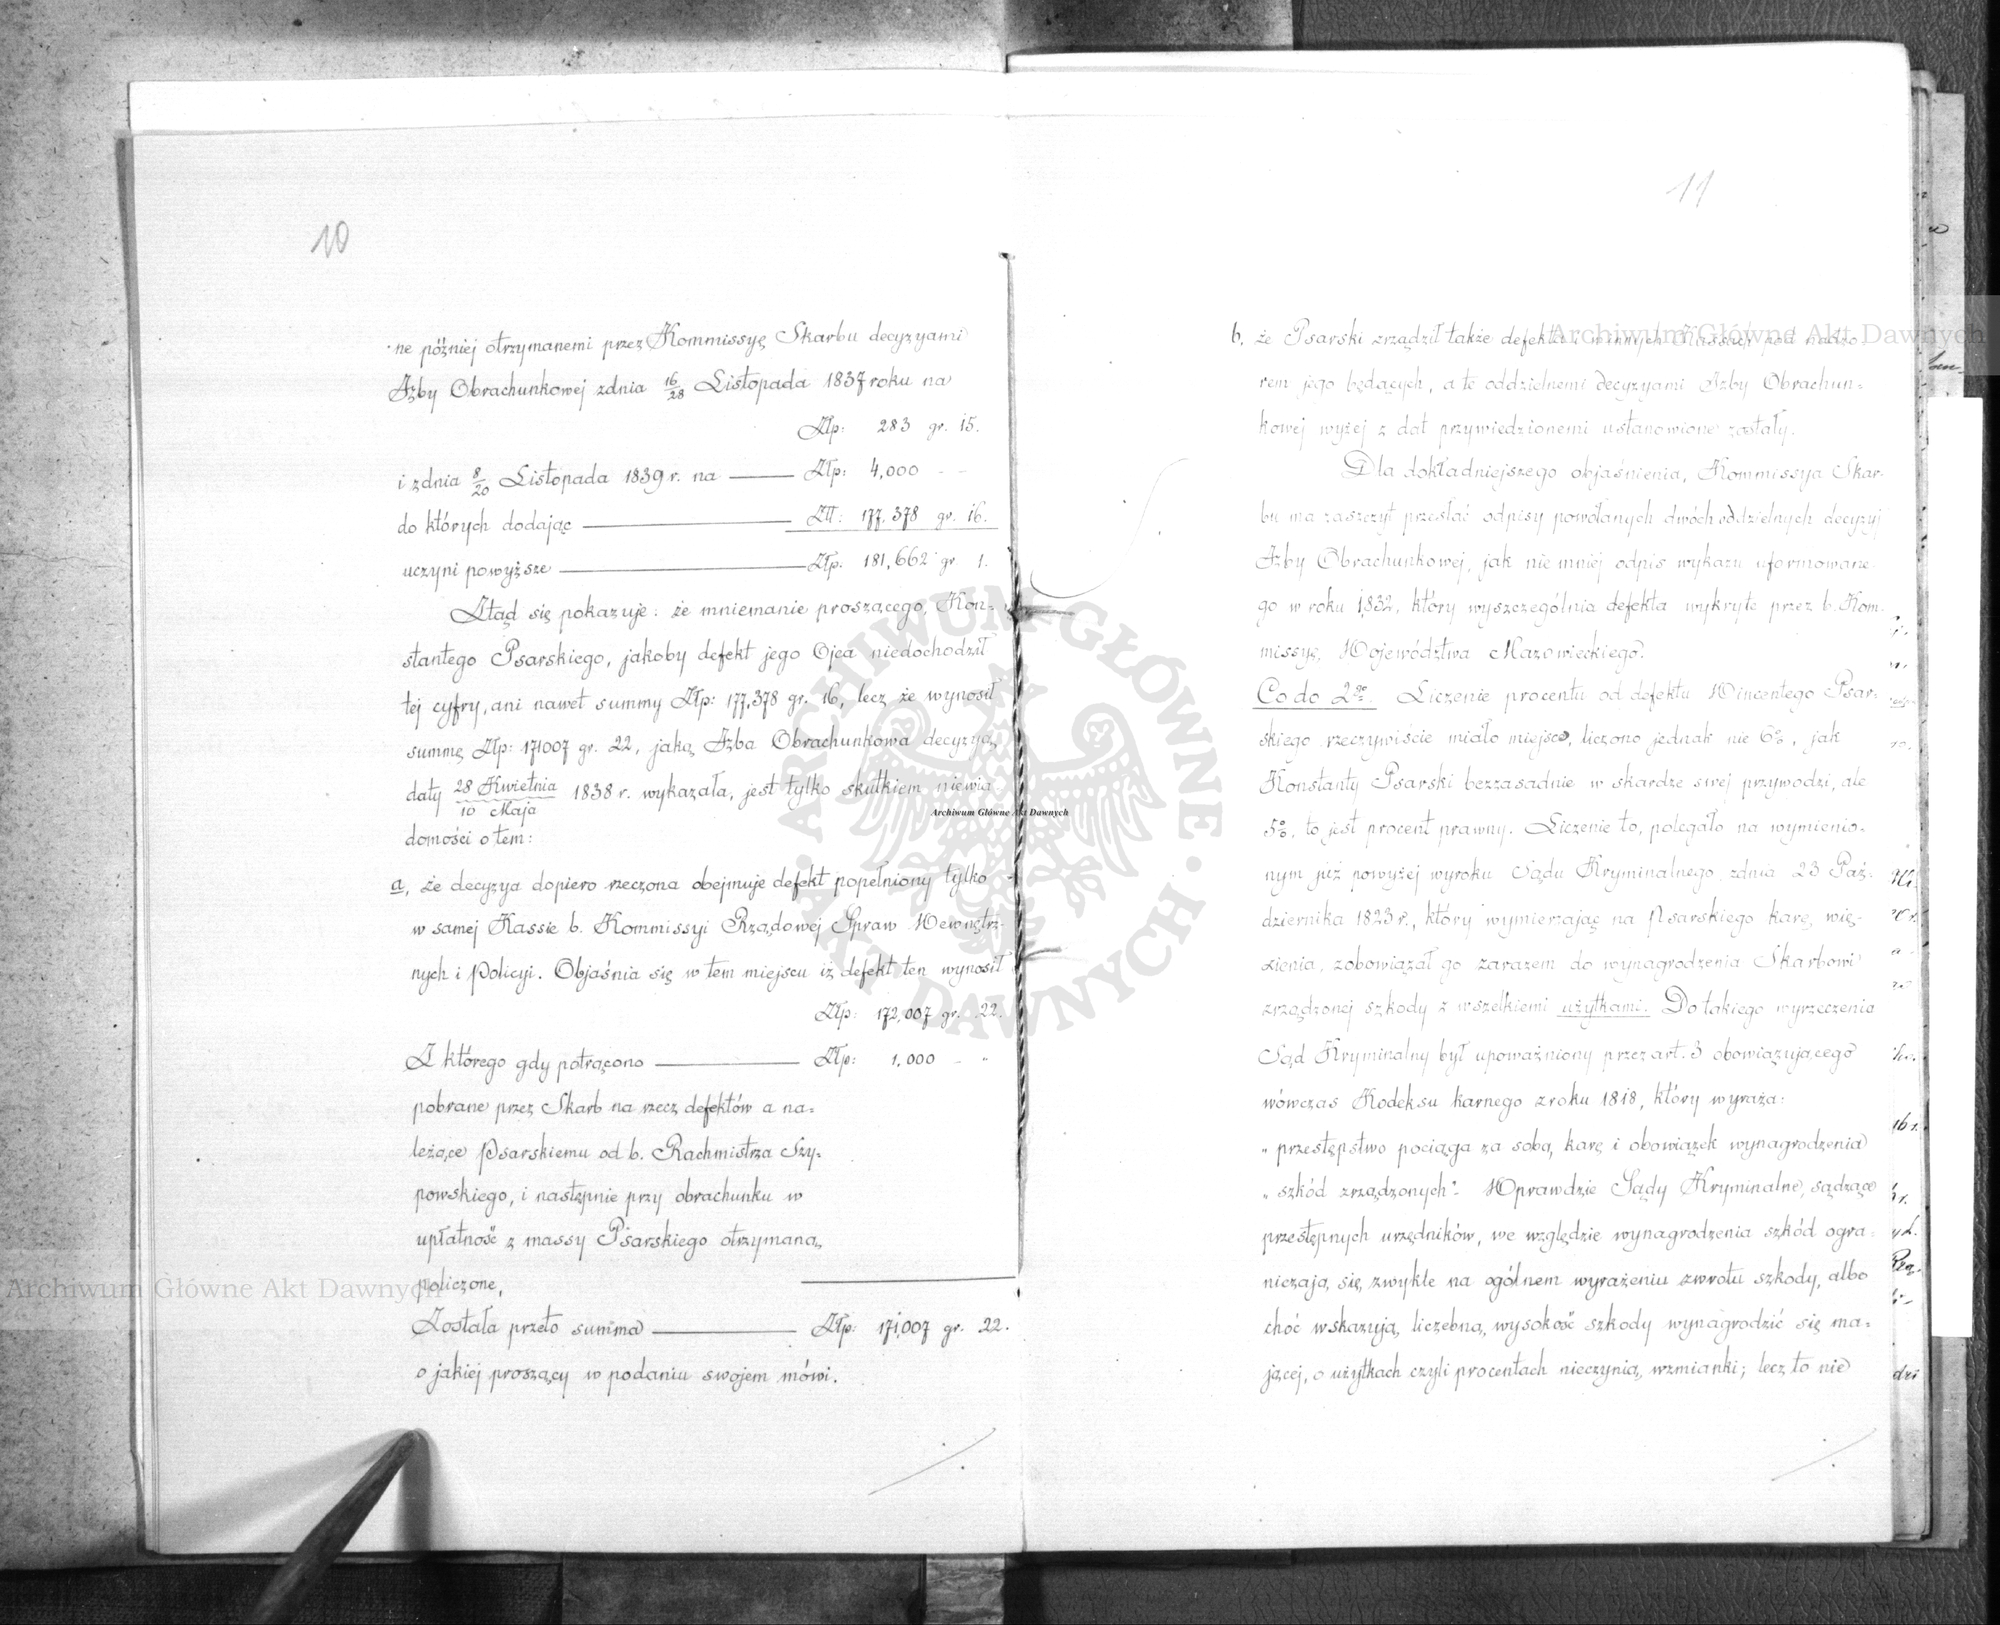 10
ne później otrzymanemi przez Kommissyę Skarbu decyzyami
Izby Obrachunkowej z dnia 16/28 Listopada 1837 roku na
Złp: 283 gr. 15.
i z dnia 8/20 Listopada 1839 r. na — Złp: 4,000 - -
do których dodając — Złł: 177,378 gr. 16.
uczyni powyższe — Złp: 181,662 gr 1.
Ztąd się pokazuje: że mniemanie proszącego, Kon-
stantego Psarskiego, jakoby defekt jego Ojca niedochodził
tej cyfry, ani nawet summy Złp: 177,378 gr. 16, lecz że wynosił
summę Złp: 171007 gr. 22, jaką Izba Obrachunkowa decyzyą
daty 28 Kwietnia/10 Maja 1838 r. wykazała, jest tylko skutkiem niewia-
domości o tem:
a, że decyzya dopiero rzeczona obejmuje defekt popełniony tylko
w samej Kassie b. Kommissyi Rządowej Spraw Wewnętrz-
nych i Policyi. Objaśnia się w tem miejscu iż defekt ten wynosił
Złp: 172,007 gr. 22.
Z którego gdy potrącono — Złp: 1,000 - "
pobrane przez Skarb na rzecz defektów a na=
leżące Psarskiemu od b. Rachmistrza Szy-
powskiego, i następnie przy obrachunku w
upłatność z massy Psarskiego otrzymaną,
policzone,
Została przeto summa — Złp: 171,007 gr. 22.
o jakiej proszący w podaniu swojem mówi.
11
b, że Psarski zrządził także defekta w innych Kassach pod nadzo-
rem jego będących, a te oddzielnemi decyzyami Izby Obrachun=
kowej wyżej z dat przywiedzionemi ustanowione zostały.
Dla dokładniejszego objaśnienia, Kommissya Skar-
bu ma zaszczyt przesłać odpisy powołanych dwóch oddzielnych decyzyj
Izby Obrachunkowej, jak niemniej odpis wykazu uformowane-
go w roku 1832, który wyszczególnia defekta wykryte przez b. Kom-
missyę Województwa Mazowieckiego.
Co do 2go. Liczenie procentu od defektu Wincentego Psar-
skiego rzeczywiście miało miejsce, liczono jednak nie 6%, jak
Konstanty Psarski bezzasadnie w skardze swej przywodzi, ale
5%, to jest procent prawny. Liczenie to, polegało na wymienio-
nym już powyżej wyroku Sądu Kryminalnego, z dnia 23 Paź-
dziernika 1823 r., który wymierzając na Psarskiego karę wię-
zienia, zobowiązał go zarazem do wynagrodzenia Skarbowi
zrządzonej szkody z wszelkiemi użytkami. Do takiego wyrzeczenia
Sąd Kryminalny był upoważniony przez art. 3 obowiązującego
wówczas Kodeksu karnego z roku 1818, który wyraża:
„ przestępstwo pociąga za sobą karę i obowiązek wynagrodzenia
„ szkód zrządzonych". Wprawdzie Sądy Kryminalne, sądzące
przestępnych urzędników, we względzie wynagrodzenia szkód ogra-
niczają się zwykle na ogólnem wyrażeniu zwrotu szkody, albo
choć wskazują liczebną wysokość szkody wynagrodzić się ma=
jącej, o użytkach czyli procentach nieczynią wzmianki; lecz to nie
Archiwum Główne Akt Dawnych
Archiwum Główne Akt Dawnych
Archiwum Główne Akt Dawnych
ARCHIWUM GŁÓWNE · AKT DAWNYCH ·